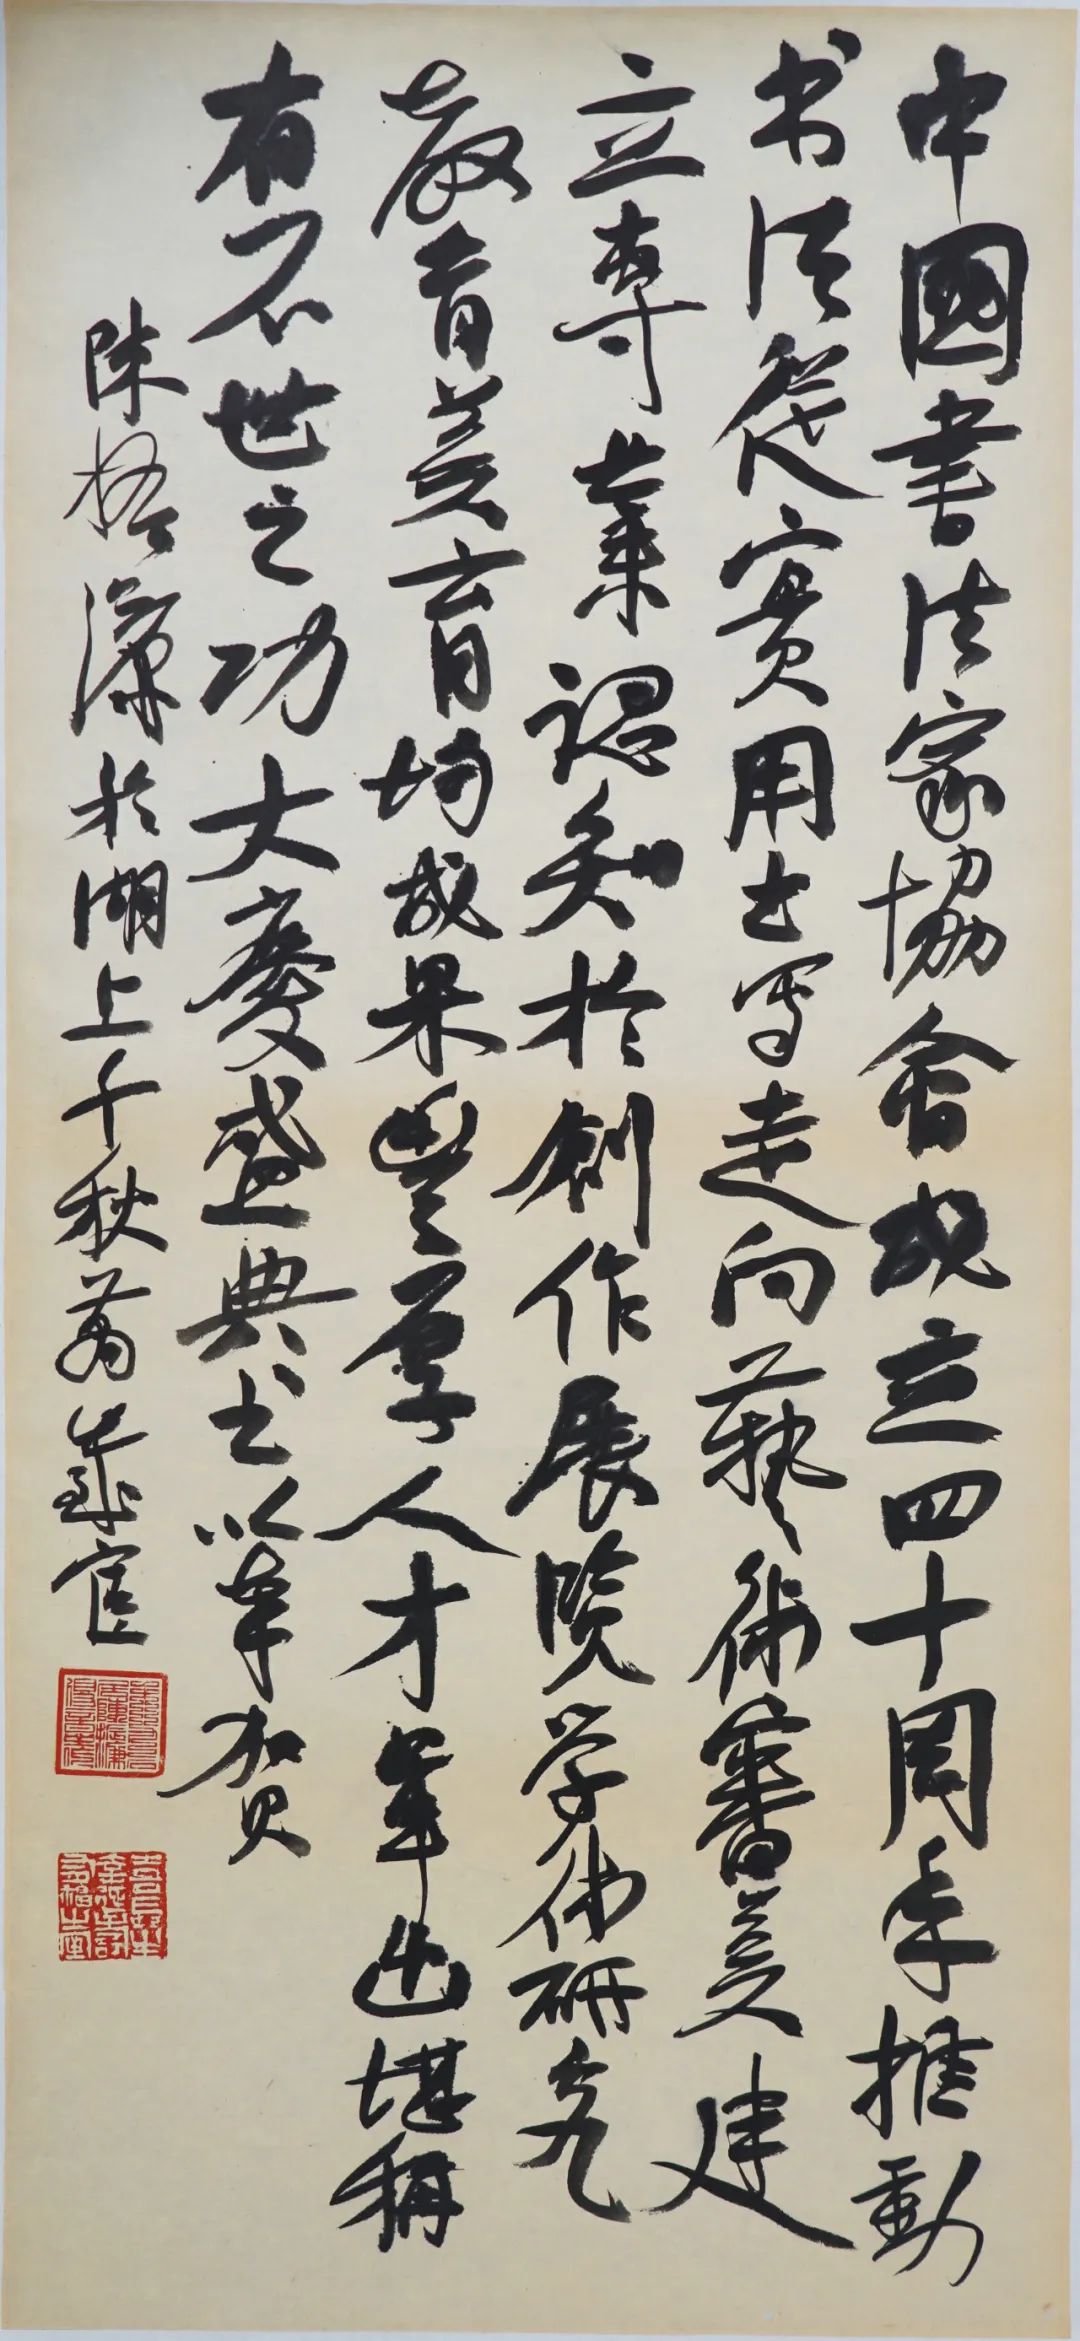 中國書法家協會成立四十周年推動
书法從實用书写走向藝術審美建
立專業認知於創作展覽学術研究
教育美育均成果豐厚人才輩出堪稱
有不世之功大慶盛典书以奉賀
陳振濂於湖上千秋萬歲宦